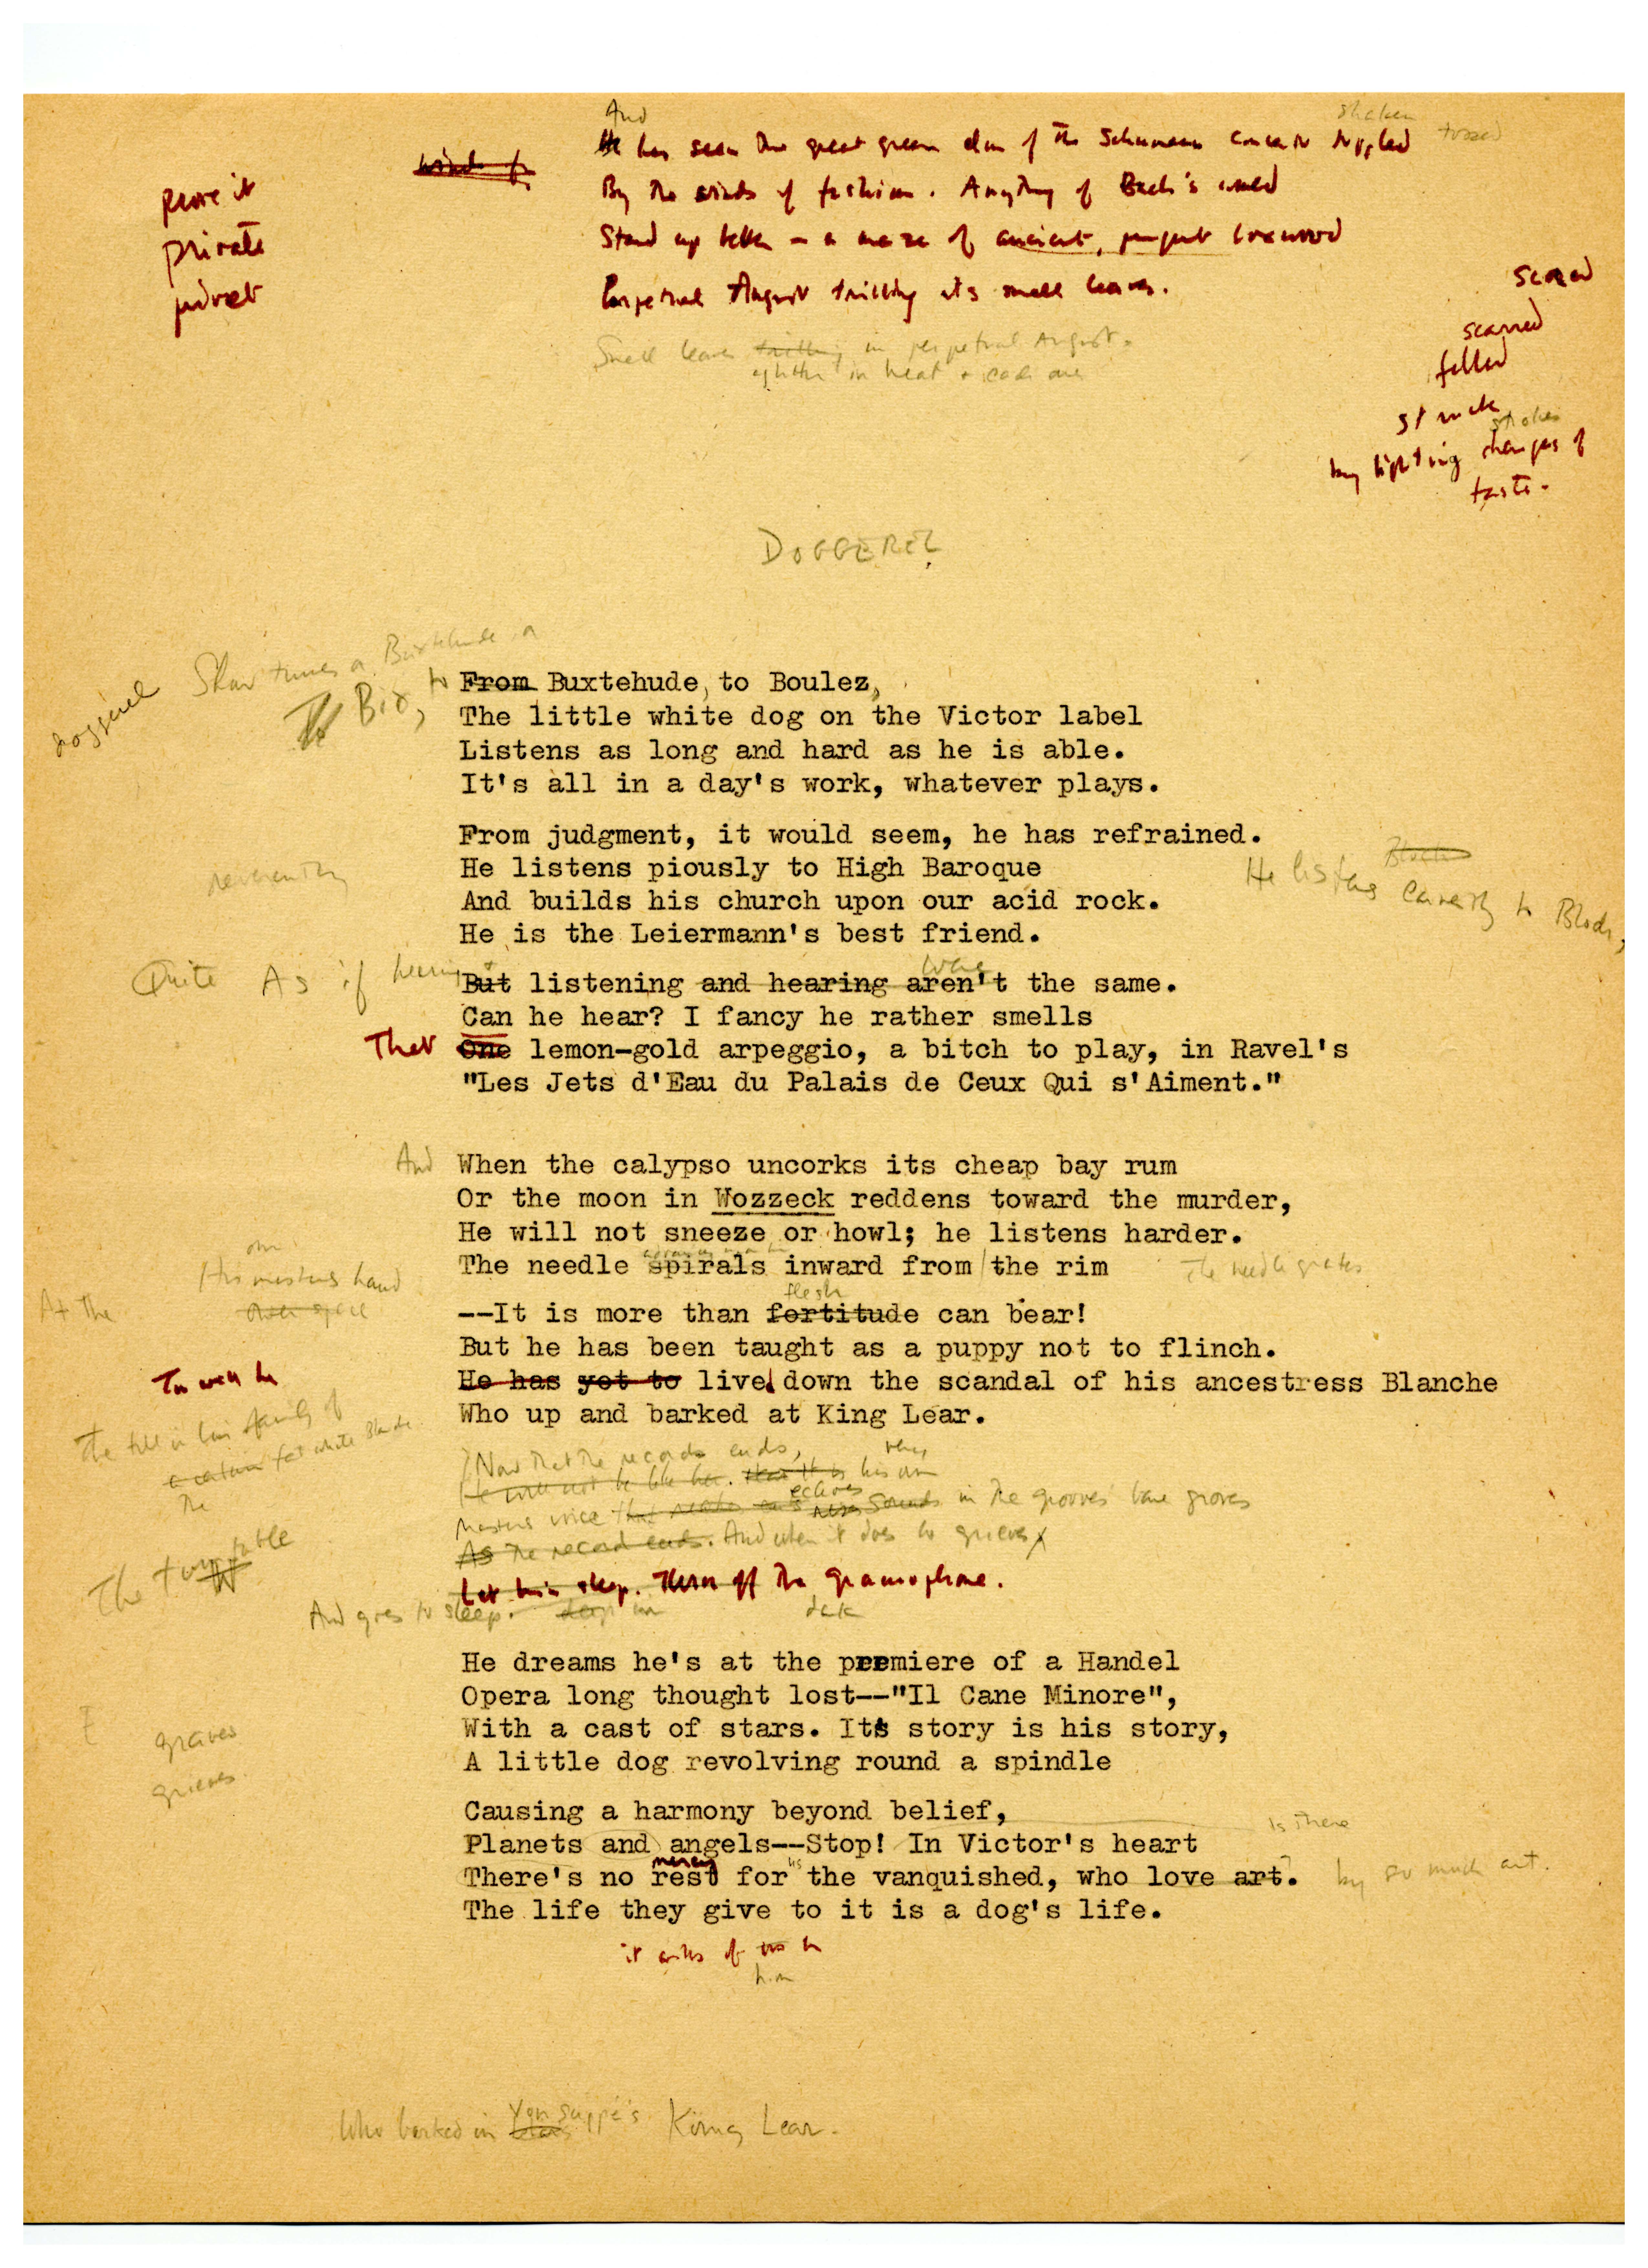 And
shaken
tossed
He has seen the great green elm of the Schumann concerto toppled
By the winds of fashion. Anything of Bach's would
Stand up better - a maze of ancient, pungent boxwood
Perpetual August trilling its small leaves.
Small leaves trilling in perpetual August.
in heat +
wind of
prove it
private
privet
scared
scarred
felled
struck
strokes
by lightning changes of
taste.
DOGGEREL
doggerel
Show tunes a Buxtehude
Bix, to
From Buxtehude, to Boulez,
The little white dog on the Victor label
Listens as long and hard as he is able.
It's all in a day's work, whatever plays.
From judgment, it would seem, he has refrained.
He listens piously to High Baroque
reverently
He listens earnestly to Bloch,
Bloch
And builds his church upon our acid rock.
He is the Leiermann's best friend.
Quite As if hearing +
were
But listening and hearing aren't the same.
Can he hear? I fancy he rather smells
That One lemon-gold arpeggio, a bitch to play, in Ravel's
"Les Jets d'Eau du Palais de Ceux Qui s'Aiment."
And When the calypso uncorks its cheap bay rum
Or the moon in Wozzeck reddens toward the murder,
He will not sneeze or howl; he listens harder.
The needle spirals inward from the rim
The needle grates
His masters hand
At the
flesh
--It is more than fortitude can bear!
But he has been taught as a puppy not to flinch.
He has yet to lived down the scandal of his ancestress Blanche
Who up and barked at King Lear.
The tale in his family of
a certain fat white Blanche
The
Now that the record ends,
He will not be like her. his own
very
echoes
masters voice in the grooves bare groves
As the record ends. And when it does he grieves
The turntable
Let him sleep. Turn off the gramophone.
And goes to sleep. deep in
dark
He dreams he's at the premiere of a Handel
Opera long thought lost--"Il Cane Minore",
With a cast of stars. Its story is his story,
A little dog revolving round a spindle
graves
grieves
Causing a harmony beyond belief,
Is there
Planets and angels--Stop! In Victor's heart
mercy
There's no rest for the vanquished, who love art.
us
by so much art.
The life they give to it is a dog's life.
it asks of
him
Who barked in Von Suppé's King Lear.